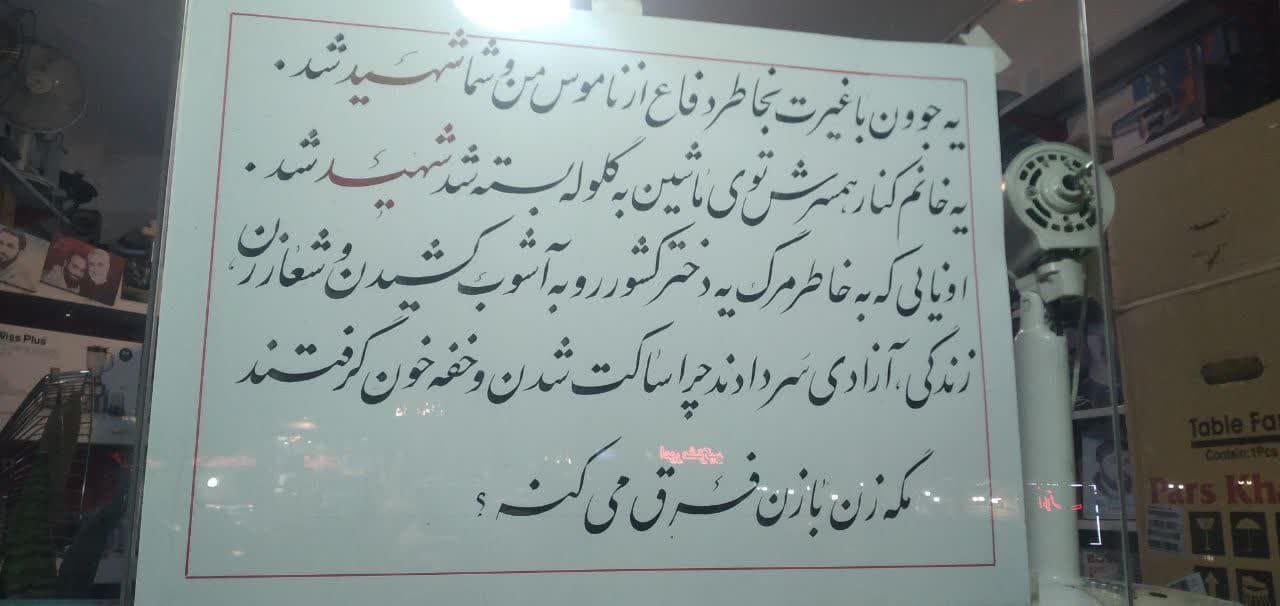 یه جوون با غیرت بخاطر دفاع از ناموس من و شما شهید شد.
یه خانم کنار همسرش توی ماشین به گلوله بسته شد شهید شد.
اونایی که به خاطر مرگ یه دختر کشور رو به آشوب کشیدن و شعار زن،
زندگی، آزادی سر دادند چرا ساکت شدن و خفه خون گرفتند
مگه زن با زن فرق می کنه؟
wiss Plus
Table Fa
Contain:1Pcs
Pars Kh